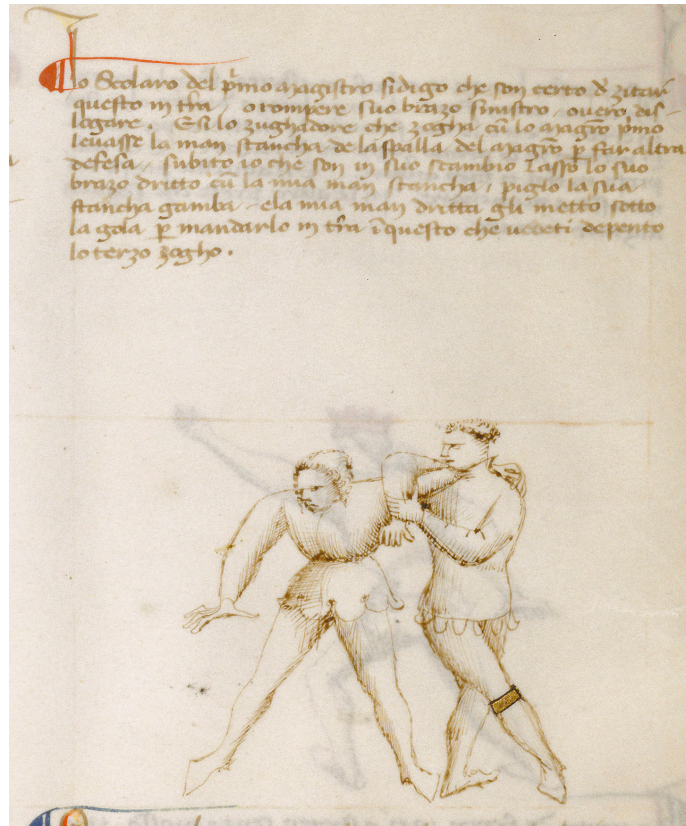 Io Scolaro del p̄mo magistro si digo che son certo d̄ zitar
questo in tr̄a, o rompere suo brazo sinistro, overo dis-
logare. E si lo zughadore che zogha cū lo magr̄o p̄mo
levasse la man stancha de la spalla del magr̄o p̄ far altra
defesa, subito io che son in suo scambio lasso lo suo
brazo dritto cū la mia man stancha, e piglo la sua
stancha gamba, e la mia man dritta gli metto sotto
la gola p̄ mandarlo in tr̄a ī questo che vedeti depento
lo terzo zogho.